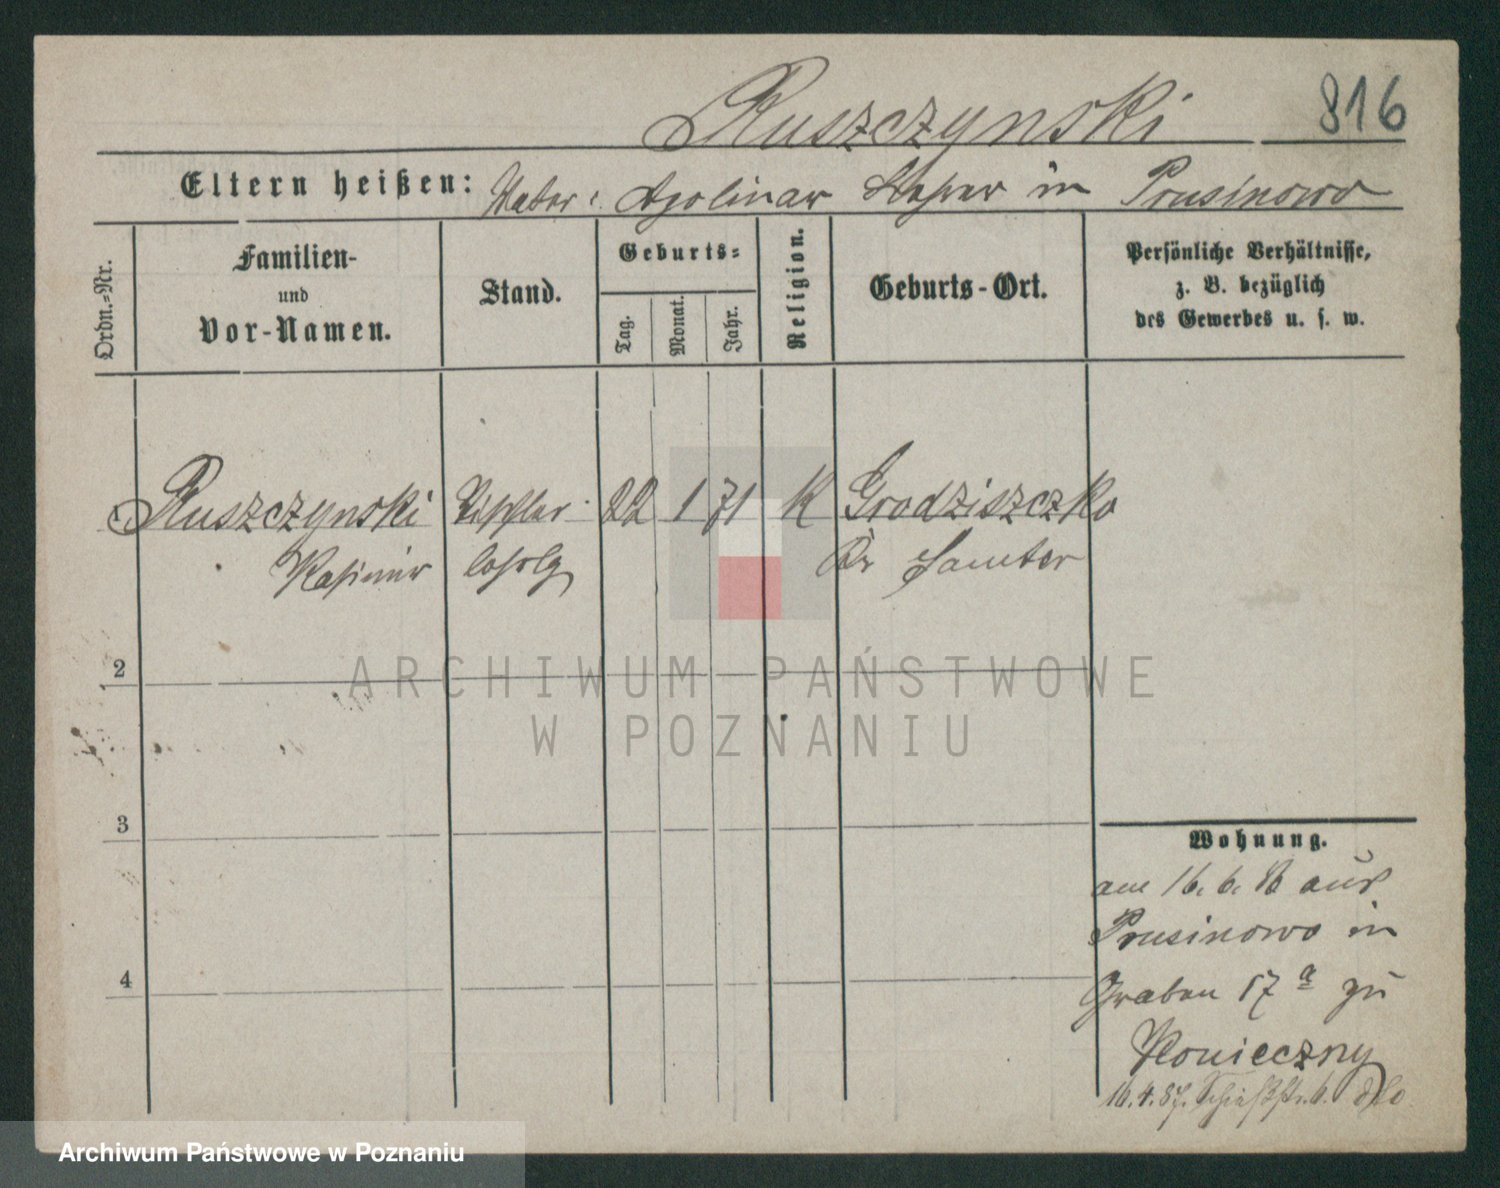 Ruszczynski 816
Eltern heißen: Vater: Apolinar Lehrer in Prusinowo
Ordn.=Nr.
Familien-
und
Vor-Namen.
Stand.
Geburts=
Tag.
Monat.
Jahr.
Religion.
Geburts-Ort.
Persönliche Verhältnisse,
z. B. bezüglich
des Gewerbes u. s. w.
Ruszczynski Tischler 22 1 71 K Grodziszczko
Kasimir lehrlg Kr Samter
2
3
4
Wohnung.
am 16. 6. 86 aus
Prusinowo in
Graben 17 a zu
Konieczny
16. 4. 87. Schießstr. 6.
ARCHIWUM PAŃSTWOWE
W POZNANIU
Archiwum Państwowe w Poznaniu